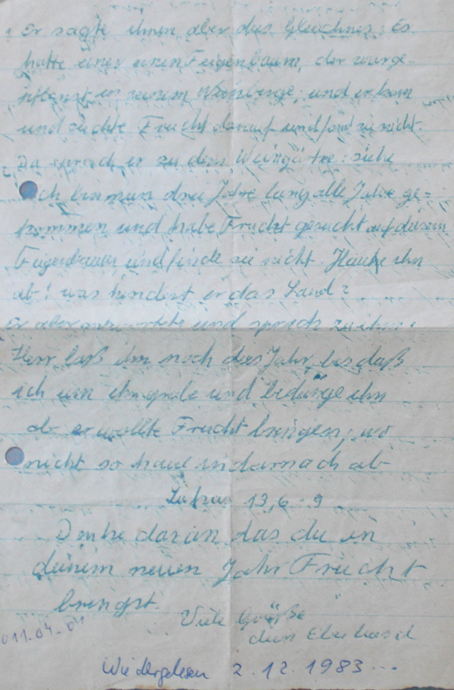 Er sagte ihnen aber dies Gleichnis: Es
hatte einer einen Feigenbaum, der war ge-
pflanzt in seinem Weinberge; und er kam
und suchte Frucht darauf und fand sie nicht.
Da sprach er zu dem Weingärtner: siehe
ich bin nun drei Jahre lang alle Jahre ge-
kommen und habe Frucht gesucht auf diesem
Feigenbaum und finde sie nicht. Haue ihn
ab! was hindert er das Land?
er aber antwortete und sprach zu ihm:
Herr laß ihn noch dies Jahr, bis daß
ich um ihn grabe und bedünge ihn
ob er wollte Frucht bringen; wo
nicht so haue ihn darnach ab
Lukas 13,6-9
Denke daran das du in
deinem neuen Jahr Frucht
bringst.
Viele Grüße
dein Eberhard
Wiedergelesen 2.12.1983...